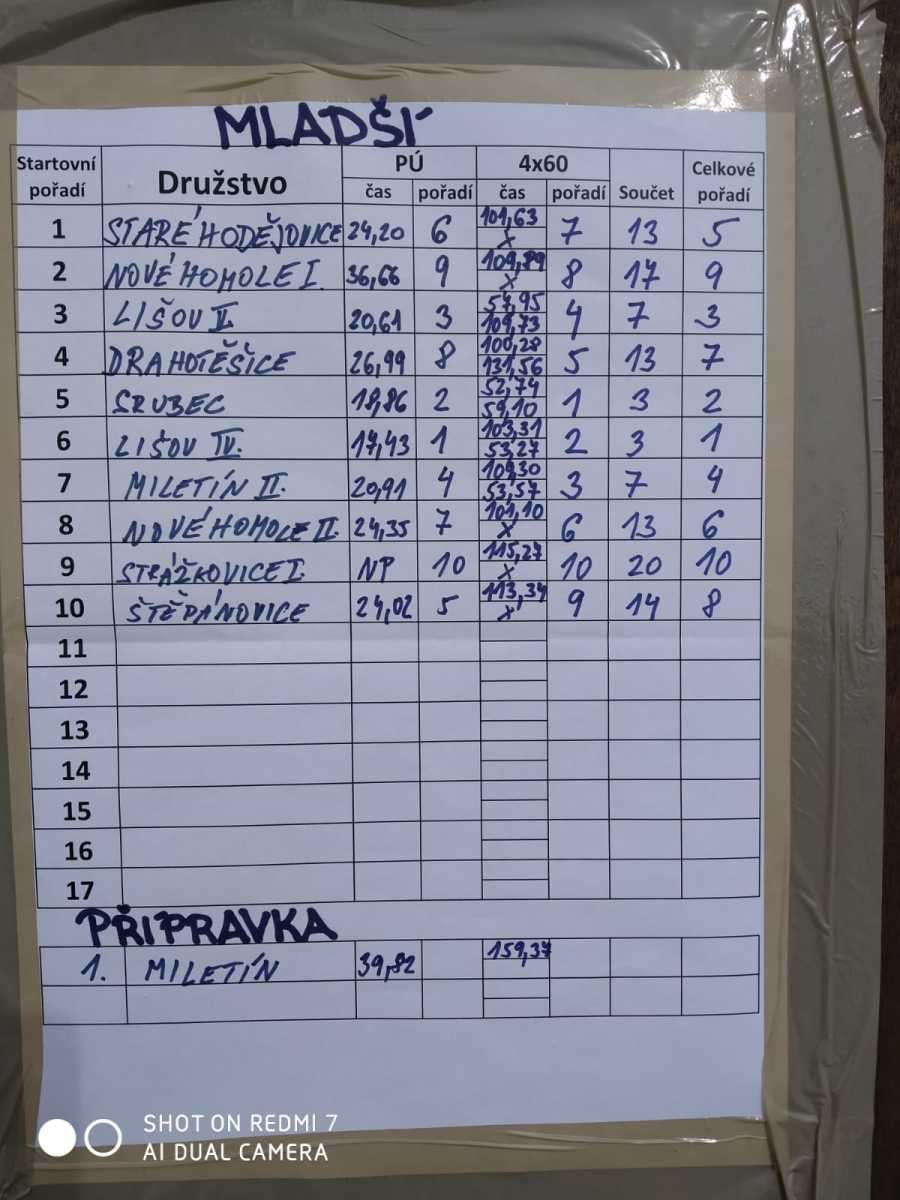 MLADŠÍ
Startovní pořadí Družstvo PÚ 4x60 Součet Celkové pořadí
čas pořadí čas pořadí
1 STARÉ HODĚJOVICE 24,20 6 101,63 X 7 13 5
2 NOVÉ HOMOLE I. 36,66 9 109,89 X 8 17 9
3 LIŠOV II. 20,61 3 57,95 109,73 4 7 3
4 DRAHOTĚŠICE 26,99 8 100,28 131,56 5 13 7
5 SRUBEC 18,86 2 52,74 59,10 1 3 2
6 LIŠOV IV. 17,43 1 103,31 53,27 2 3 1
7 MILETÍN II. 20,91 4 109,30 53,57 3 7 4
8 NOVÉ HOMOLE II. 24,35 7 101,10 X 6 13 6
9 STRÁŽKOVICE I. NP 10 115,27 X 10 20 10
10 ŠTĚPÁNOVICE 24,02 5 113,34 X 9 14 8
11
12
13
14
15
16
17
PŘIPRAVKA
1. MILETÍN 39,82 159,37
SHOT ON REDMI 7
AI DUAL CAMERA